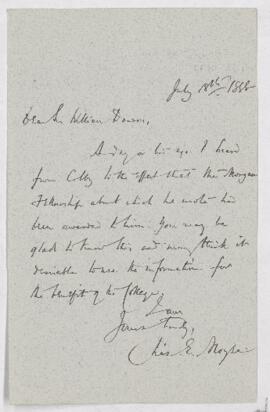 July 18th, 1888
Dear Sir William Dawson,
A day or two ago I heard
from Colby to the effect that the Morgan
Fellowship about which he wrote had
been awarded to him. You may be
glad to know this and may think it
desirable to use the information for
the benefit of the College.
I am
Yours truly,
Chas E. Moyse